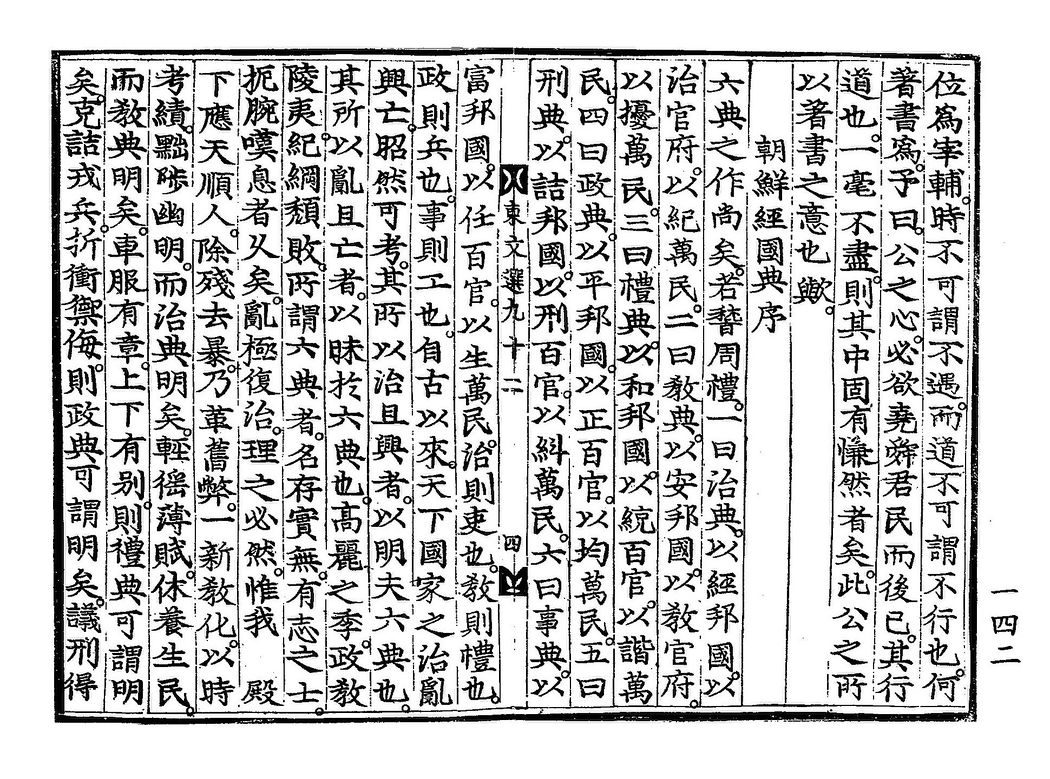 位爲宰輔。時不可謂不遇。而道不可謂不行也。何
著書爲。予曰。公之心。必欲堯舜君民而後已。其行
道也。一毫不盡。則其中固有慊然者矣。此公之所
以著書之意也歟。
朝鮮經國典序
六典之作尚矣。若稽周禮。一曰治典。以經邦國。以
治官府。以紀萬民。二曰敎典。以安邦國。以敎官府。
以擾萬民。三曰禮典。以和邦國。以統百官。以諧萬
民。四曰政典。以平邦國。以正百官。以均萬民。五曰
刑典。以詰邦國。以刑百官。以糾萬民。六曰事典。以
東文選九十二 四
富邦國。以任百官。以生萬民。治則吏也。敎則禮也。
政則兵也。事則工也。自古以來。天下國家之治亂
興亡。昭然可考。其所以治且興者。以明夫六典也。
其所以亂且亡者。以昧於六典也。高麗之季。政敎
陵夷。紀綱頹敗。所謂六典者。名存實無。有志之士。
扼腕嘆息者久矣。亂極復治。理之必然。惟我 殿
下應天順人。除殘去暴。乃革舊弊。一新敎化。以時
考績。黜陟幽明。而治典明矣。輕徭薄賦。休養生民。
而敎典明矣。車服有章。上下有别。則禮典可謂明
矣。克詰戎兵。折衝禦侮。則政典可謂明矣。議刑得
一四二